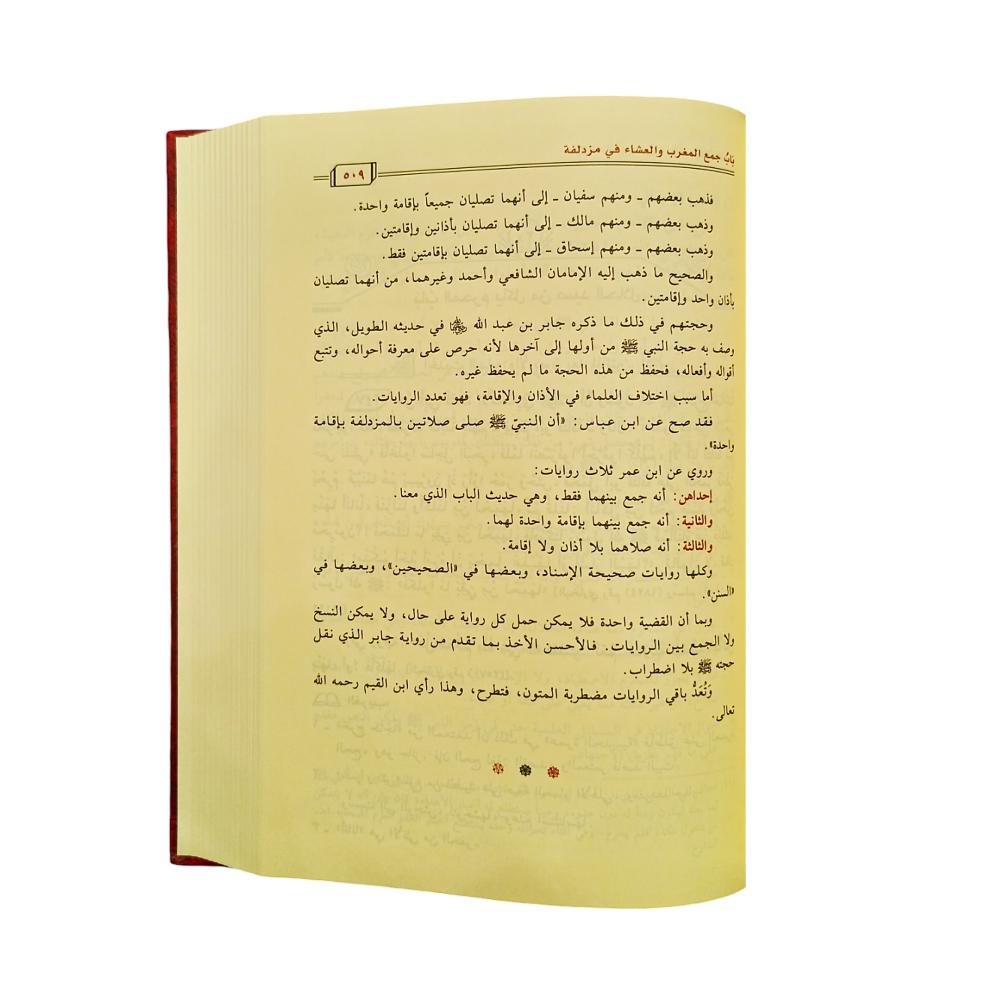 بَابُ جمع المغرب والعشاء في مزدلفة
٥٠٩
فذهب بعضهم ـ ومنهم سفيان ـ إلى أنهما تصليان جميعاً بإقامة واحدة.
وذهب بعضهم ـ ومنهم مالك ـ إلى أنهما تصليان بأذانين وإقامتين.
وذهب بعضهم ـ ومنهم إسحاق ـ إلى أنهما تصليان بإقامتين فقط.
والصحيح ما ذهب إليه الإمامان الشافعي وأحمد وغيرهما، من أنهما تصليان
بأذان واحد وإقامتين.
وحجتهم في ذلك ما ذكره جابر بن عبد الله ﵁ في حديثه الطويل، الذي
وصف به حجة النبي ﷺ من أولها إلى آخرها لأنه حرص على معرفة أحواله، وتتبع
أقواله وأفعاله، فحفظ من هذه الحجة ما لم يحفظ غيره.
أما سبب اختلاف العلماء في الأذان والإقامة، فهو تعدد الروايات.
فقد صح عن ابن عباس: «أن النبيّ ﷺ صلى صلاتين بالمزدلفة بإقامة
واحدة».
وروي عن ابن عمر ثلاث روايات:
إحداهن: أنه جمع بينهما فقط، وهي حديث الباب الذي معنا.
والثانية: أنه جمع بينهما بإقامة واحدة لهما.
والثالثة: أنه صلاهما بلا أذان ولا إقامة.
وكلها روايات صحيحة الإسناد، وبعضها في «الصحيحين»، وبعضها في
«السنن».
وبما أن القضية واحدة فلا يمكن حمل كل رواية على حال، ولا يمكن النسخ
ولا الجمع بين الروايات. فالأحسن الأخذ بما تقدم من رواية جابر الذي نقل
حجته ﷺ بلا اضطراب.
وَتُعَدُّ باقي الروايات مضطربة المتون، فتطرح، وهذا رأي ابن القيم رحمه الله
تعالى.